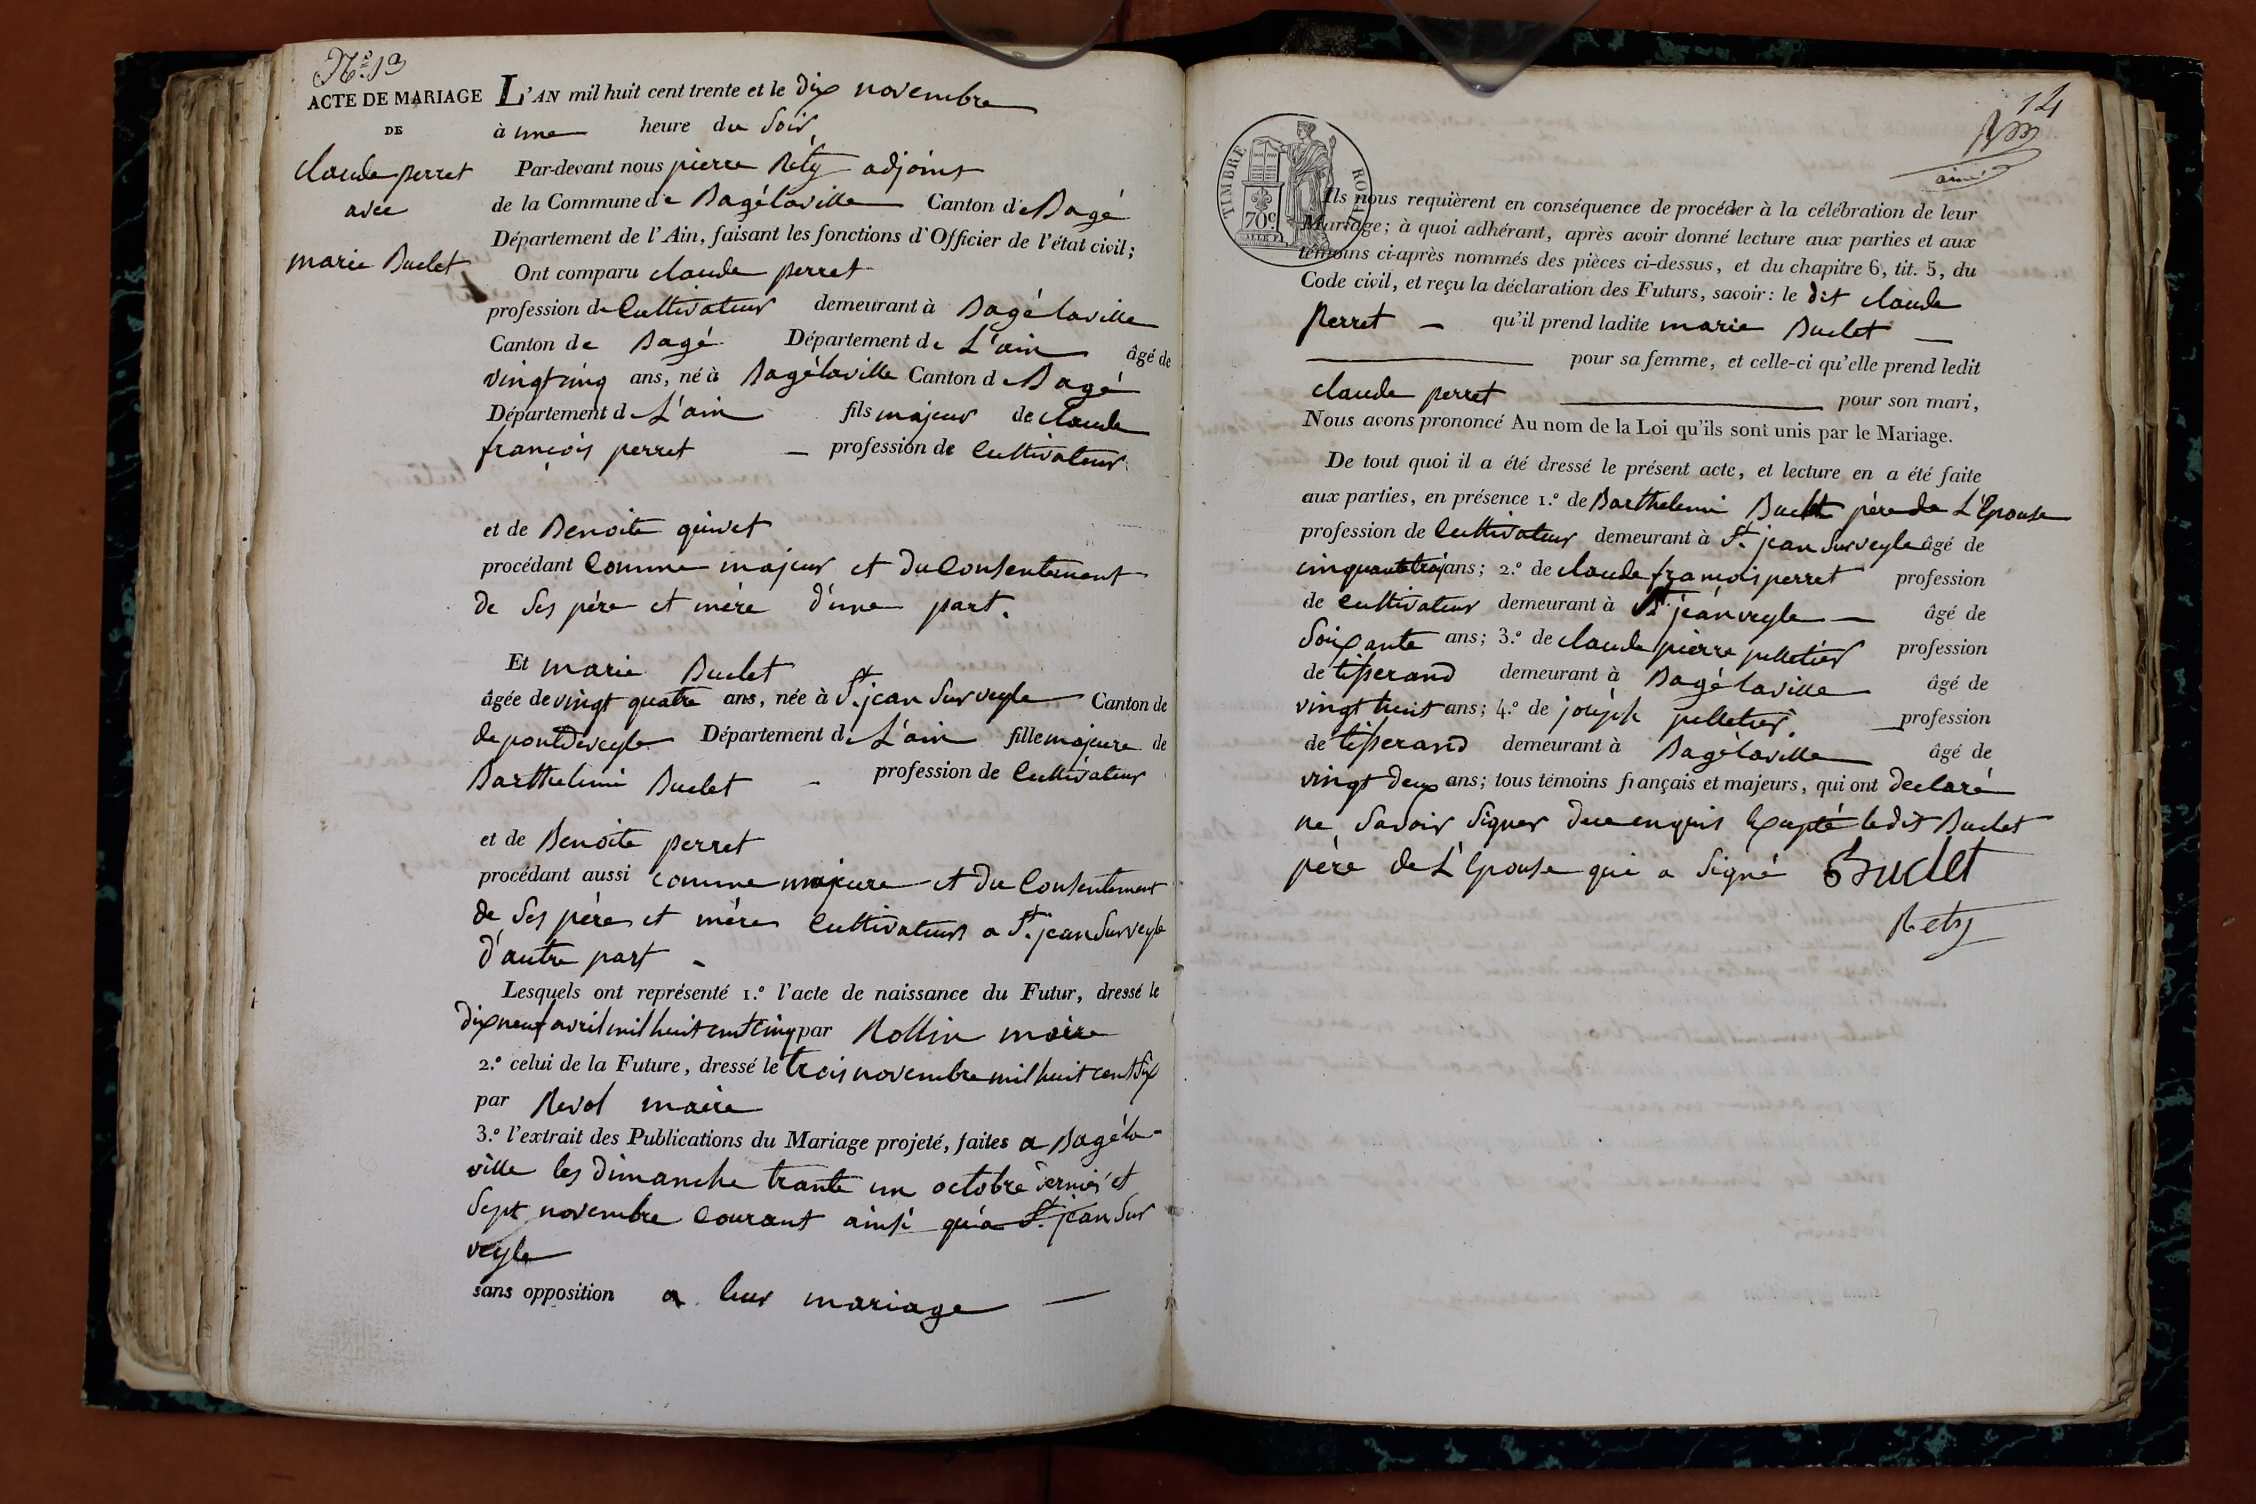 N.º 13
ACTE DE MARIAGE
DE
claude perret
avec
marie Buclet
L'AN mil huit cent trente et le dix novembre
à une heure du soir
Par-devant nous pierre Réty adjoint
de la Commune de Bagélaville Canton de Bagé
Département de l'Ain, faisant les fonctions d'Officier de l'état civil;
Ont comparu claude perret
profession de Cultivateur demeurant à Bagélaville
Canton de Bagé Département de L'ain âgé de
vingt cinq ans, né à Bagélaville Canton de Bagé
Département de L'ain fils majeur de claude
françois perret profession de Cultivateur
et de Benoite
procédant Comme majeur et du Consentement
de Ses père et mère d'une part.
Et marie Buclet
âgée de vingt quatre ans, née à St. jean Sur veyle Canton de
de pontdeveyle Département de L'ain fille majeure de
Barthelemi Buclet profession de Cultivateur
et de Benoite perret
procédant aussi comme majeure et du Consentement
de Ses père et mère Cultivateurs a St. jean Sur veyle
d'autre part
Lesquels ont représenté 1.º l'acte de naissance du Futur, dressé le
dix neuf avril mil huit cent cinq par Rollin maire
2.º celui de la Future, dressé le trois novembre mil huit cent Six
par Revol maire
3.º l'extrait des Publications du Mariage projeté, faites a Bagéla-
ville les dimanche trante un octobre dernier et
Sept novembre Courant ainsi qu'a St. jean Sur
veyle
sans opposition a leur mariage
14
TIMBRE ROYAL
70c
Ils nous requièrent en conséquence de procéder à la célébration de leur
Mariage; à quoi adhérant, après avoir donné lecture aux parties et aux
témoins ci-après nommés des pièces ci-dessus, et du chapitre 6, tit. 5, du
Code civil, et reçu la déclaration des Futurs, savoir: le dit claude
Perret qu'il prend ladite marie Buclet
pour sa femme, et celle-ci qu'elle prend ledit
claude perret pour son mari,
Nous avons prononcé Au nom de la Loi qu'ils sont unis par le Mariage.
De tout quoi il a été dressé le présent acte, et lecture en a été faite
aux parties, en présence 1.º de Barthelemi Buclet père de L'Epouse
profession de Cultivateur demeurant à St. jean Sur veyle âgé de
cinquante trois ans; 2.º de claude françois perret profession
de Cultivateur demeurant à St. jean veyle âgé de
Soixante ans; 3.º de claude pierre pelletier profession
de tisserand demeurant à Bagélaville âgé de
vingt huit ans; 4.º de joseph pelletier profession
de tisserand demeurant à Bagélaville âgé de
vingt deux ans; tous témoins français et majeurs, qui ont declaré
ne Savoir Signer de ce enquis Excepté ledit Buclet
père de L'Epouse qui a Signé Buclet
Rety